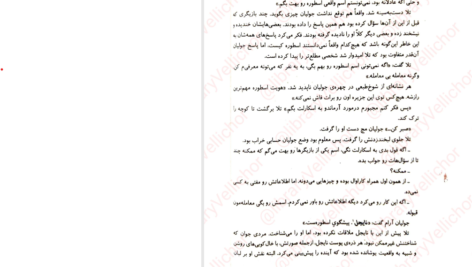 و حتی اگه عادلانه بود. نمی‌تونستم اسم واقعی اسطوره رو بهت بگم.»
تلا دست‌به‌سینه شد. واقعاً هم توقع نداشت جولیان چیزی بگوید. چند بازیگری که
قبل از این از آن‌ها سؤال کرده بود هم همین پاسخ را داده بودند. بعضی‌هایشان خندیده و
نیشخند زده و بعضی دیگر کلاً او را نادیده گرفته بودند. فکر می‌کرد پاسخ‌های همه‌شان به
این خاطر این‌گونه باشد که هیچ‌کدام واقعاً نمی‌دانستند اسطوره کیست. اما پاسخ جولیان
آن‌قدر متفاوت بود که تلا امیدوار شد شخصی مطلع‌تر را پیدا کرده است.
تلا گفت: «اگه نمی‌تونی اسم اسطوره رو بهم بگی، یه نفر که می‌تونه معرفی‌م کن
وگرنه معامله بی معامله.»
هر نشانه‌ای از شوخ‌طبعی در چهره‌ی جولیان ناپدید شد. «هویت اسطوره مهم‌ترین
رازشه. هیچ‌کس توی این جزیره اون رو برات فاش نمی‌کنه.»
«پس فکر کنم مجبورم درمورد آرماندو به اسکارلت بگم.» تلا برگشت تا کوچه را
ترک کند.
«صبر کن...» جولیان مچ دست او را گرفت.
تلا جلوی لبخندزدنش را گرفت. پس معلوم بود وضع جولیان حسابی خراب بود.
ـ اگه قول بدی به اسکارلت نگی، اسم یکی از بازیگرها رو بهت می‌گم که ممکنه چند
تا از سؤال‌هات رو جواب بده.
ـ ممکنه؟
ـ از همون اول همراه کاراوال بوده و چیزهایی می‌دونه. اما اطلاعاتش رو مفتی به کسی
نمی‌ده.
ـ اگه این کار رو می‌کرد دیگه اطلاعاتش رو باور نمی‌کردم. اسمش رو بگی معامله‌مون
قبوله.
جولیان آرام گفت: «نایجل. پیشگوی اسطوره‌ست.»
تلا پیش از این با نایجل ملاقات نکرده بود، اما او را می‌شناخت. مردی جوان که
شناختنش غیرممکن نبود. هر ذره‌ی پوست نایجل، ازجمله صورتش، با خال‌کوبی‌های روشن
و شبیه به واقعیت پوشانده شده بود که آینده را پیش‌بینی می‌کرد. البته نقش او بر